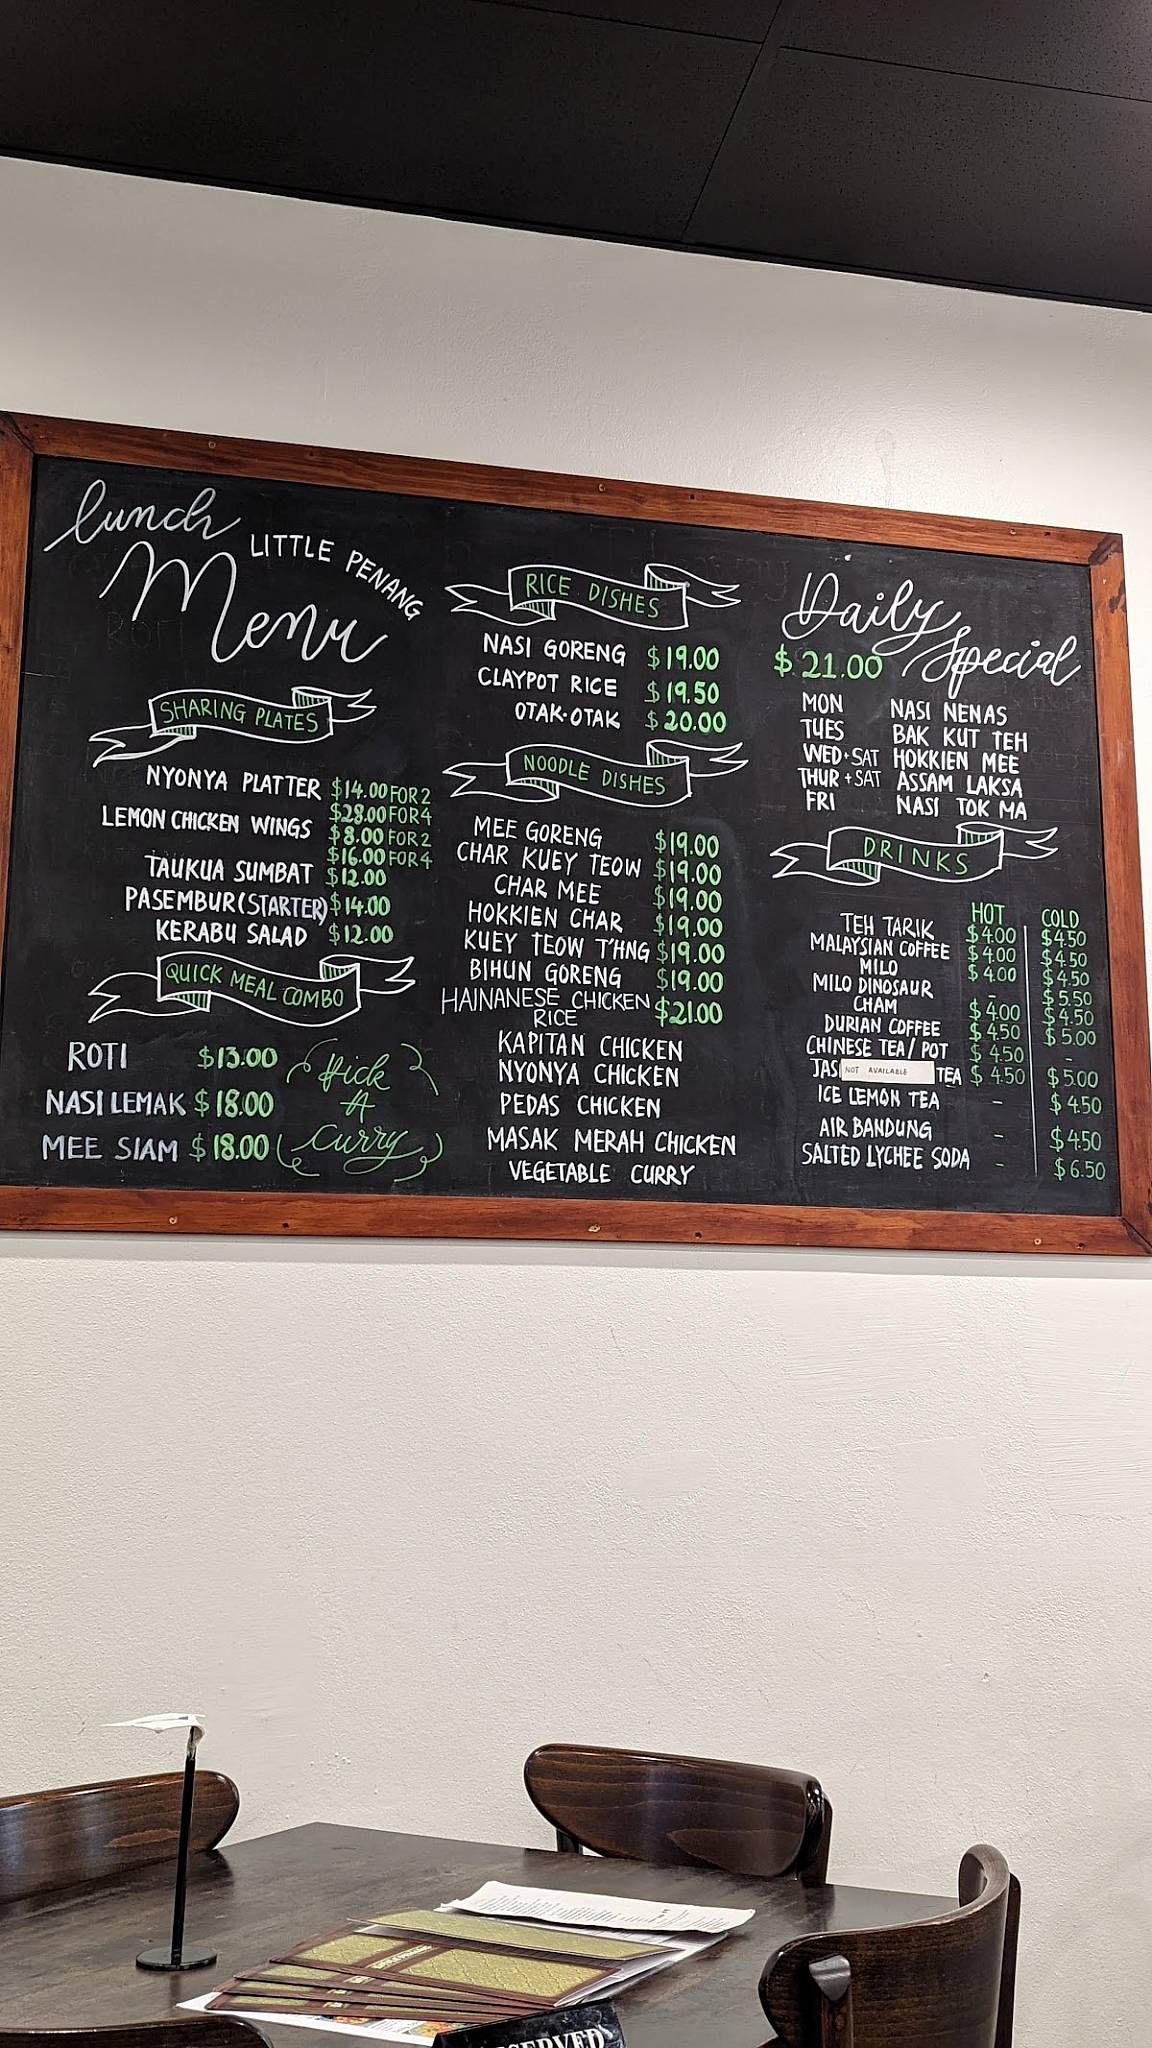 lunch
Menu
LITTLE PENANG
SHARING PLATES
NYONYA PLATTER $14.00 FOR 2
$28.00 FOR 4
LEMON CHICKEN WINGS $8.00 FOR 2
$16.00 FOR 4
TAUKUA SUMBAT $12.00
PASEMBUR (STARTER) $14.00
KERABU SALAD $12.00
QUICK MEAL COMBO
ROTI $13.00
NASI LEMAK $18.00
MEE SIAM $18.00
Pick
A
Curry
RICE DISHES
NASI GORENG $19.00
CLAYPOT RICE $19.50
OTAK-OTAK $20.00
NOODLE DISHES
MEE GORENG $19.00
CHAR KUEY TEOW $19.00
CHAR MEE $19.00
HOKKIEN CHAR $19.00
KUEY TEOW T'HNG $19.00
BIHUN GORENG $19.00
HAINANESE CHICKEN $21.00
RICE
KAPITAN CHICKEN
NYONYA CHICKEN
PEDAS CHICKEN
MASAK MERAH CHICKEN
VEGETABLE CURRY
Daily
Special
$21.00
MON NASI NENAS
TUES BAK KUT TEH
WED+SAT HOKKIEN MEE
THUR+SAT ASSAM LAKSA
FRI NASI TOK MA
DRINKS
HOT COLD
TEH TARIK $4.00 $4.50
MALAYSIAN COFFEE $4.00 $4.50
MILO $4.00 $4.50
MILO DINOSAUR - $5.50
CHAM $4.00 $4.50
DURIAN COFFEE $4.50 $5.00
CHINESE TEA/POT $4.50 -
JAS NOT AVAILABLE TEA $4.50 $5.00
ICE LEMON TEA - $4.50
AIR BANDUNG - $4.50
SALTED LYCHEE SODA - $6.50